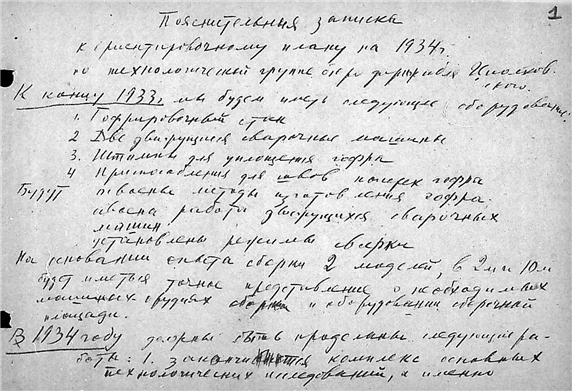 1
Пояснительная записка
к ориентировочному плану на 1934 г.
по технологической группе бюро дирижабля Циолков-
ского.
К концу 1933 г. мы будем иметь следующее оборудование:
1. Гофрировочный стан
2 Две движущиеся сварочные машины
3. Штампы для уплощения гофра
4 Приспособления для швов поперек гофра
Будут освоены методы изготовления гофра.
освоена работа движущихся сварочных
машин.
установлены режимы сварки
На основании опыта сборки 2 моделей, в 2 м и 10 м
будет иметься точное представление о необходимых
машинах орудиях и оборудовании сборочной
площади.
В 1934 году должны быть проделаны следующие ра-
боты: 1. комплекс основных
технологических исследований, а именно